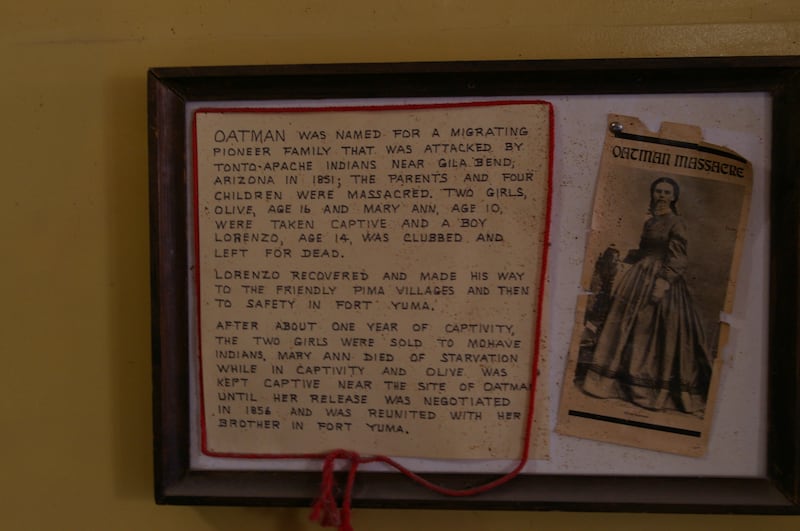 OATMAN WAS NAMED FOR A MIGRATING
PIONEER FAMILY THAT WAS ATTACKED BY
TONTO-APACHE INDIANS NEAR GILA BEND,
ARIZONA IN 1851; THE PARENTS AND FOUR
CHILDREN WERE MASSACRED. TWO GIRLS,
OLIVE, AGE 16 AND MARY ANN, AGE 10,
WERE TAKEN CAPTIVE AND A BOY
LORENZO, AGE 14, WAS CLUBBED AND
LEFT FOR DEAD.
LORENZO RECOVERED AND MADE HIS WAY
TO THE FRIENDLY PIMA VILLAGES AND THEN
TO SAFETY IN FORT YUMA.
AFTER ABOUT ONE YEAR OF CAPTIVITY,
THE TWO GIRLS WERE SOLD TO MOHAVE
INDIANS, MARY ANN DIED OF STARVATION
WHILE IN CAPTIVITY AND OLIVE WAS
KEPT CAPTIVE NEAR THE SITE OF OATMA
UNTIL HER RELEASE WAS NEGOTIATED
IN 1856 AND WAS REUNITED WITH HER
BROTHER IN FORT YUMA.
OATMAN MASSACRE